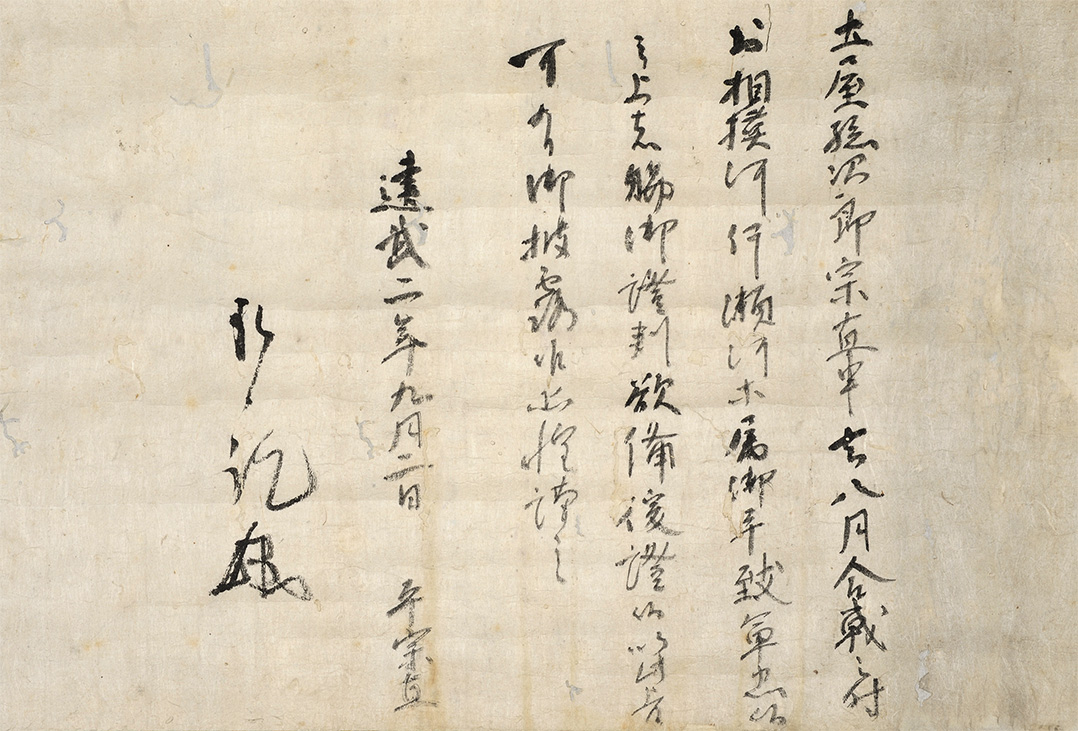 土屋孫次郎宗直申去八月合戦之時
於相撲河片瀬河等属御手致軍忠候
之上者賜御證判欲備後證候以此旨
可有御披露候恐惶謹言
建武二年九月二日 平宗直
承訖